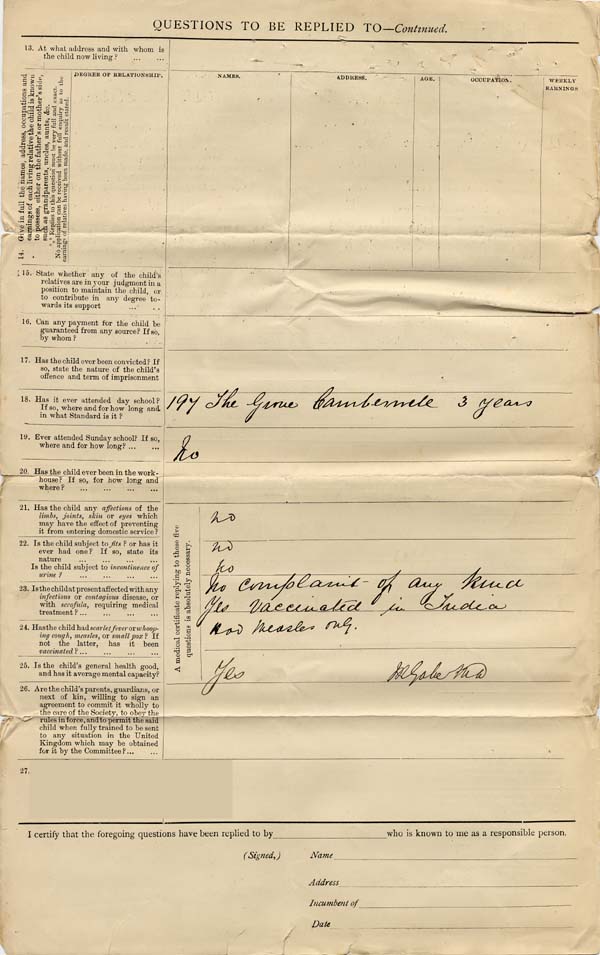 QUESTIONS TO BE REPLIED TO—Continued.
13. At what address and with whom is
the child now living? ... ...
14. Give in full the names, address, occupations and
earnings of each living relative the child is known
to possess, either on the father's or mother's side,
such as grandparents, uncles, aunts, &c.
*** Replies to this question must be very full and exact.
No application can be received without full enquiry as to the
earnings of relatives having been made, and result stated.
DEGREE OF RELATIONSHIP. NAMES. ADDRESS. AGE. OCCUPATION. WEEKLY
EARNINGS
15. State whether any of the child's
relatives are in your judgment in a
position to maintain the child, or
to contribute in any degree to-
wards its support ... ..
16. Can any payment for the child be
guaranteed from any source? If so,
by whom?
17. Has the child ever been convicted? If
so, state the nature of the child's
offence and term of imprisonment
18. Has it ever attended day school?
If so, where and for how long and
in what Standard is it?
197 The Grove Camberwele 3 years
19. Ever attended Sunday school? If so,
where and for how long? ... ...
No
20. Has the child ever been in the work-
house? If so, for how long and
where? ... ... ... ...
A medical certificate replying to these five
questions is absolutely necessary.
21. Has the child any affections of the
limbs, joints, skin or eyes which
may have the effect of preventing
it from entering domestic service?
no
22. Is the child subject to fits? or has it
ever had one? If so, state its
nature ... ... ... ...
no
Is the child subject to incontinence of
urine? ... ... ... ...
no
23. Is the child at present affected with any
infectious or contagious disease, or
with scrofula, requiring medical
treatment? ... ... ... ...
No complaint of any kind
24. Has the child had scarlet fever or whoop-
ing cough, measles, or small pox? If
not the latter, has it been
vaccinated? ... ... ... ...
Yes Vaccinated in India
Had Measles only.
25. Is the child's general health good,
and has it average mental capacity?
Yes
26. Are the child's parents, guardians, or
next of kin, willing to sign an
agreement to commit it wholly to
the care of the Society, to obey the
rules in force, and to permit the said
child when fully trained to be sent
to any situation in the United
Kingdom which may be obtained
for it by the Committee? ... ...
27.
I certify that the foregoing questions have been replied to by who is known to me as a responsible person.
(Signed,) Name
Address
Incumbent of
Date